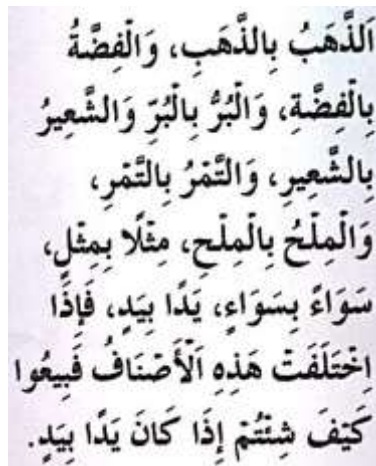 اَلذَّهَبُ بِالذَّهَبِ، وَالْفِضَّةُ
بِالْفِضَّةِ، وَالْبُرُّ بِالْبُرِّ وَالشَّعِيرُ
بِالشَّعِيرِ، وَالتَّمْرُ بِالتَّمْرِ،
وَالْمِلْحُ بِالْمِلْحِ، مِثْلًا بِمِثْلٍ،
سَوَاءً بِسَوَاءٍ، يَدًا بِيَدٍ، فَإِذَا
اِخْتَلَفَتْ هَذِهِ اَلْأَصْنَافُ فَبِيعُوا
كَيْفَ شِئْتُمْ إِذَا كَانَ يَدًا بِيَدٍ.